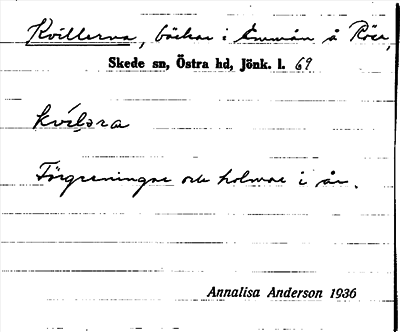 Kvillerna, bäckar i Emmån å Röse,
Skede sn, Östra hd, Jönk. l. 69
kvíl̥ɔra
Förgreningar och holmar i ån.
Annalisa Anderson 1936